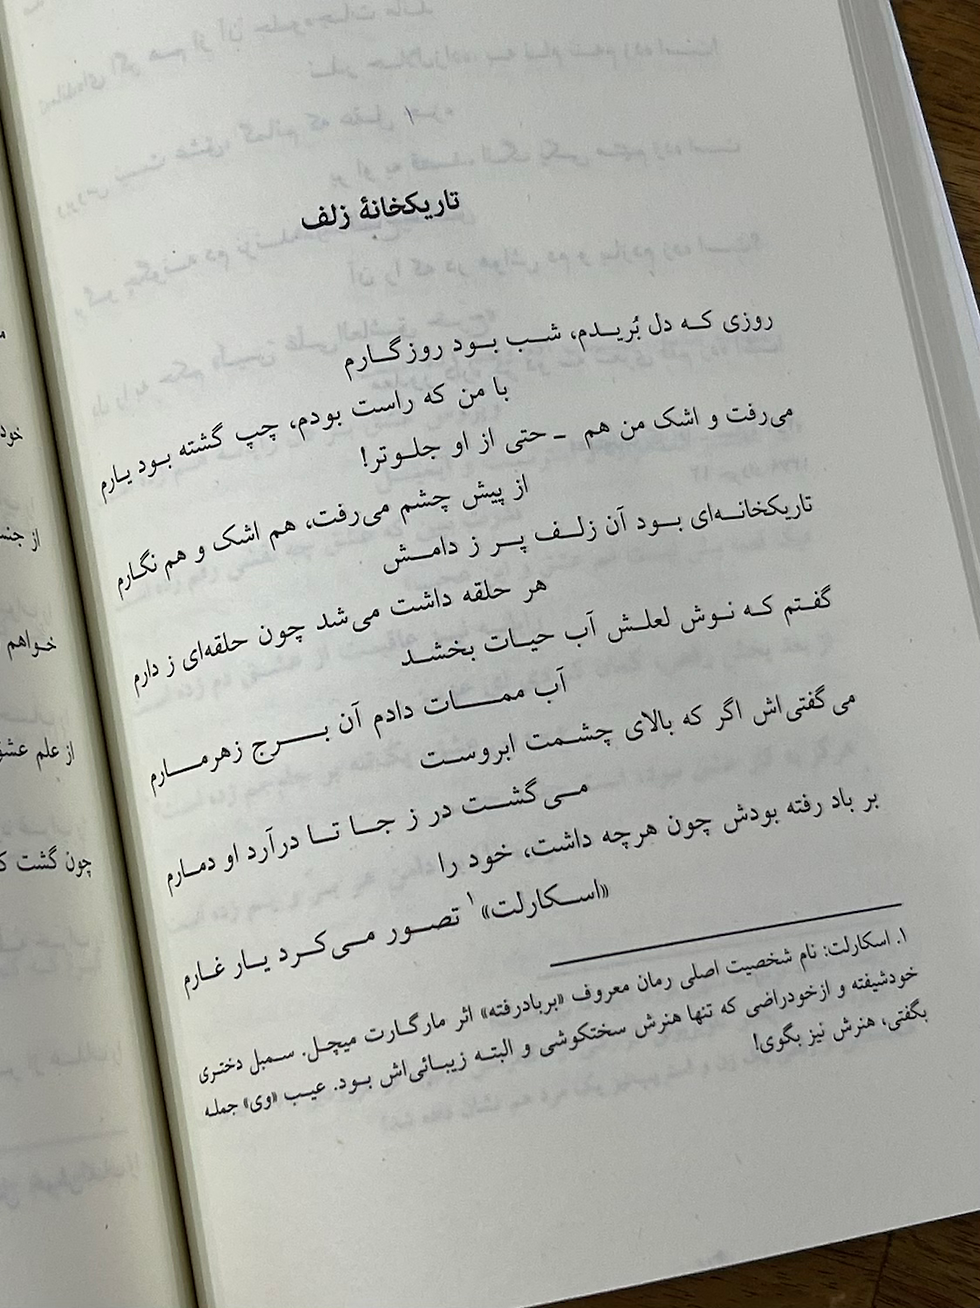 تاریکخانهٔ زلف
روزی که دل بُریدم، شب بود روزگارم
با من که راست بودم، چپ گشته بود یارم
می‌رفت و اشک من هم - حتی از او جلوتر!
از پیش چشم می‌رفت، هم اشک و هم نگارم
تاریکخانه‌ای بود آن زلف پر ز دامش
هر حلقه داشت می‌شد چون حلقه‌ای ز دارم
گفتم که نوش لعلش آب حیات بخشد
آب ممات دادم آن برج زهرمارم
می‌گفتی‌اش اگر که بالای چشمت ابروست
می‌گشت در ز جا تا درآرد او دمارم
بر باد رفته بودش چون هرچه داشت، خود را
«اسکارلت»۱ تصور می‌کرد یار غارم
۱. اسکارلت: نام شخصیت اصلی رمان معروف «بربادرفته» اثر مارگارت میچل. سمبل دختری
خودشیفته و ازخودراضی که تنها هنرش سختکوشی و البته زیبائی‌اش بود. عیب «وی» جمله
بگفتی، هنرش نیز بگوی!
خود
از جنس
خواهم
از علم عشق
چون گشت